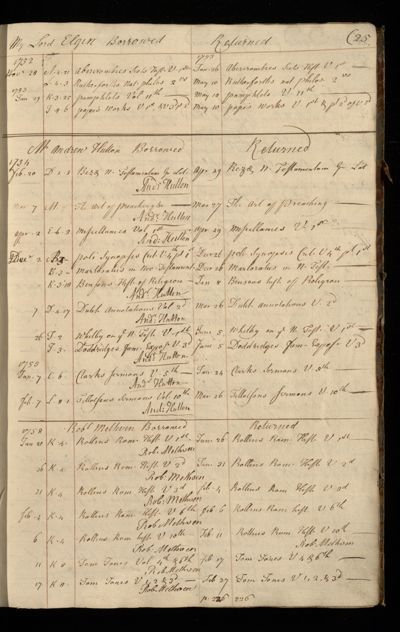 My Lord Elgin Borrowed Returned (25
1752 1753
Novr 20 Abercrombies Scots Hist: V 1st Jan 26 Abercrombies Scots Hist. V 1st
Rutherfords Nat philos 2 May 10 Rutherfords nat philos 2
1753
Jan 29 K 3. pamphlets Vol 11th May 10 pamphlets V 11th
popes works May 10 popes works
Mr Andrew Hutton Borrowed Returned
1754
Feb. 20 D 2 2 Beza N. Testamentum Gr Lat Apr 29 Beza N. Testamentum Gr Lat
Andr Hutton
7 The art of preaching Mar 27 The Art of Preaching
Andr Hutton
apr 2 E 4 2 miscellanies Vol 1st apr 29 miscellanies V 1st
Andr Hutton
2 poli Synopsis Crit V 4th pt 1st Decr 26 poli Synopsis Crit V 4th pt 1st
Martoratus in Nov Testament Dec 26 Martoratus in N. Test.
Bensons Hist of Religeon Jan 8 Bensons hist of Religion
Andr Hutton
7 D 4 17 Dutch Annotations Vol 2d Mar 26 Dutch annotations V 2d
Andr Hutton
26 T. 2 Whitby on ye N. Test V 1st June 5 Whitby on ye N. Test. V 1st
T 3. Doddridges Fam. Exposr V 3d June 5 Doddridges Fam. Exposr V 3d
Andr Hutton
1755
Jan. 7 L 6 Clarks Sermons V. 5th Jan 24 Clarks Sermons V 5th
Andr Hutton
Feb. 7 Tillotsons Sermons Vol. 10th Mar 26 Tillotsons Sermons V 10th
Andr Hutton
1758 Robt Methven Borrowed Returned
Jan 20 K. 4. Rollins Rom. Hist V 1st Jan 26 Rollins Rom Hist. V 1st
Rob. Methven
26 K. 4. Rollins Rom. Hist V 2d Jan 31 Rollins Rom. Hist V 2d
Rob. Methven
31 K 4 Rollins Rom Hist V 3d Feb. 4 Rollins Rom Hist. V 3d
Rob. Methven
Feb. 4 K. 4 Rollins Rom. Hist. Feb 6 Rollins Rom hist. V 6th
Rob Methven
6 K. 4. Rollins Rom hist V 10th Feb 11 Rollins Rom Hist. V 10th
Rob. Methven Rob. Methven
11 K Tom Jones Vol 4th & 6th Feb 17 Tom Jones V 4 & 6th
Rob Methven
17 K Tom Jones V 1, 2 & 3d Feb 27 Tom Jones V 1, 2, & 3d
Rob Methven
p. 226 226